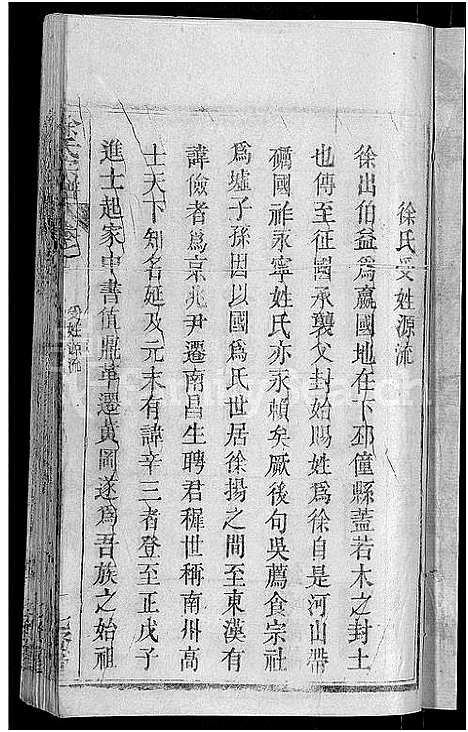 徐氏受姓源流
徐出伯益為嬴國地在下邳僮縣蓋若木之封土
也傳至征國承襲父封始賜姓為徐自是河山帶
礪國祚永寧姓氏亦永賴矣厥後句吳薦食宗社
為墟子孫因以國為氏世居徐揚之間至東漢有
諱儉者為京兆尹遷南昌生聘君穉世稱南州高
士天下知名延及元末有諱辛三者登至正戊子
進士起家中書值鼎革遷黃岡遂為吾族之始祖
受姓源流
FamilySearch